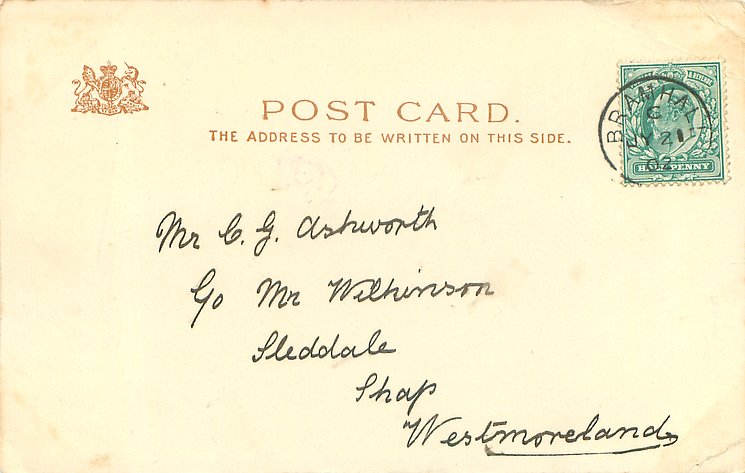 POST CARD.
THE ADDRESS TO BE WRITTEN ON THIS SIDE.
BRAMHALL
C
MY 21
02
HALFPENNY
Mr C. G. Ashworth
c/o Mr Wilkinson
Sleddale
Shap
Westmoreland